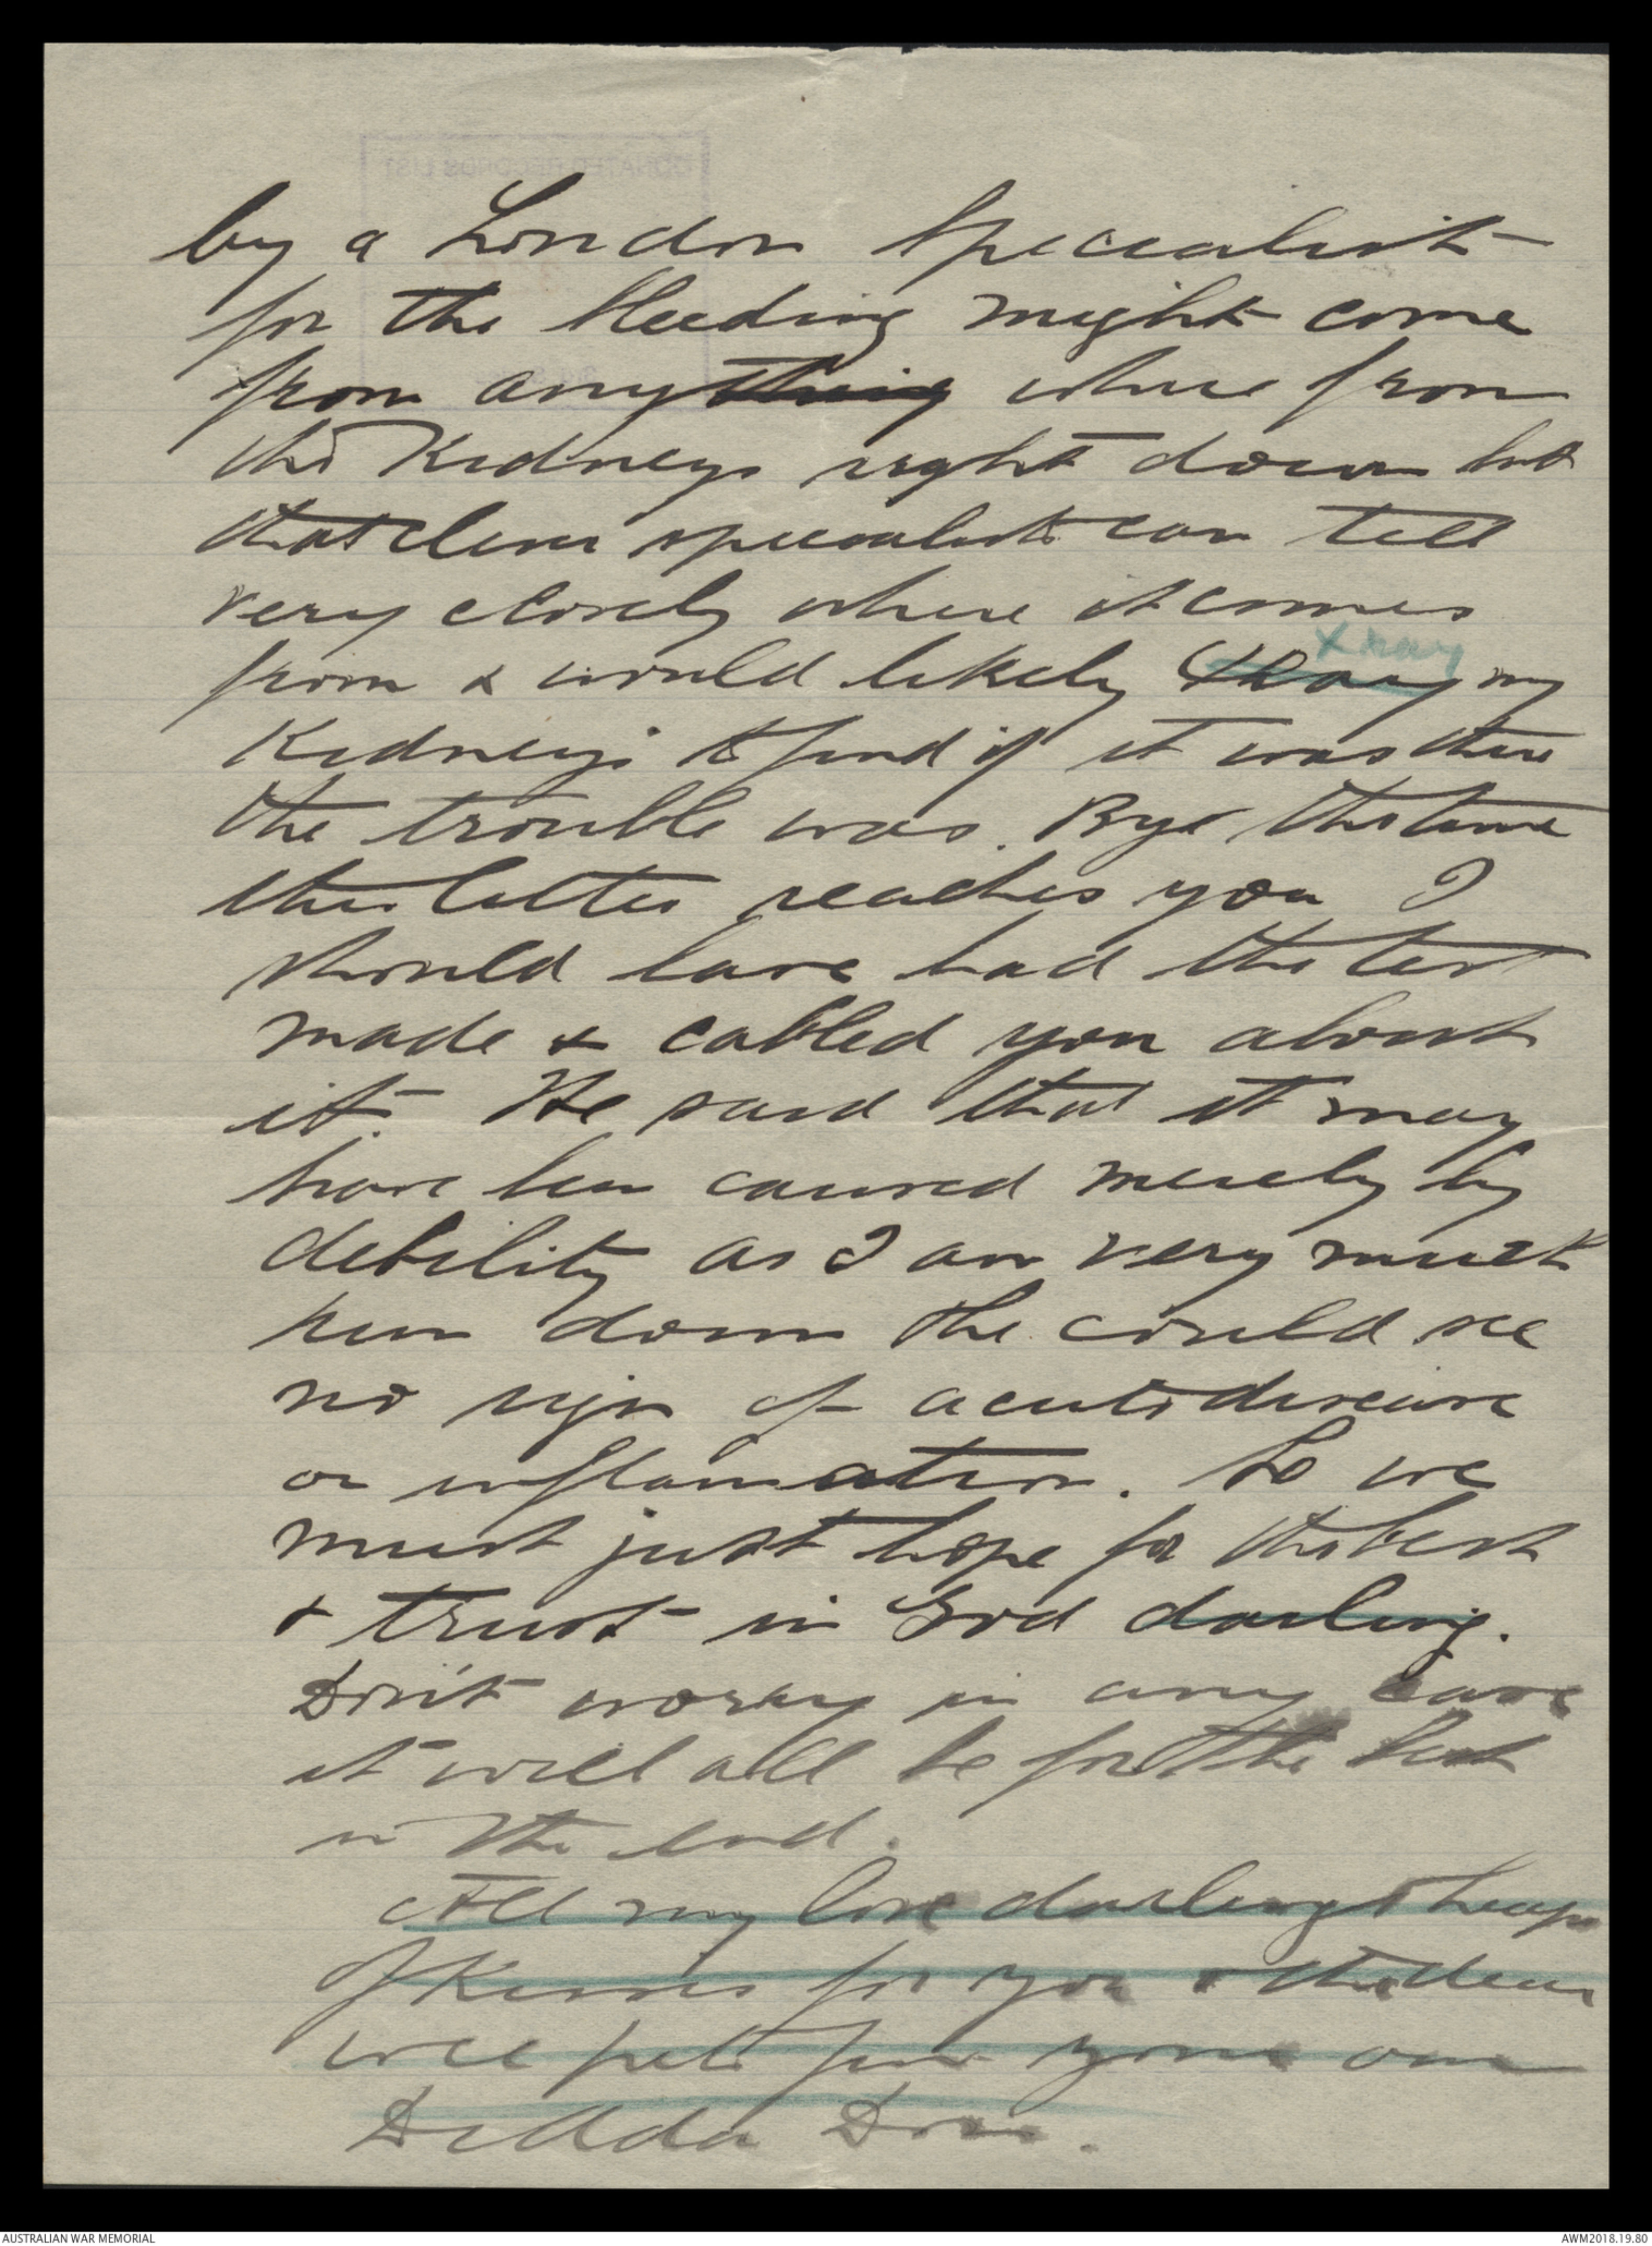 by a London Specialist
for the bleeding might come
from anything where from
the Kidneys right down but
that clever specialist can tell
very closely where it comes
X ray
from & would likely Xray my
Kidneys to find if it was there
the trouble was. Bye the time
this letter reaches you I
should have had the test
made & cabled you about
it. He said that it may
have been caused merely by
debility as I am very much
run down & he could see
no sign of acute disease
or inflamation. So we
must just hope for the best
& trust in God darling.
Don't worry in any case
it will all be for the best
in the end.
All my love darling & heaps
of Kisses for you & the dear
wee pet from your own
Dedda
AUSTRALIAN WAR MEMORIAL
AWM2018.19.80